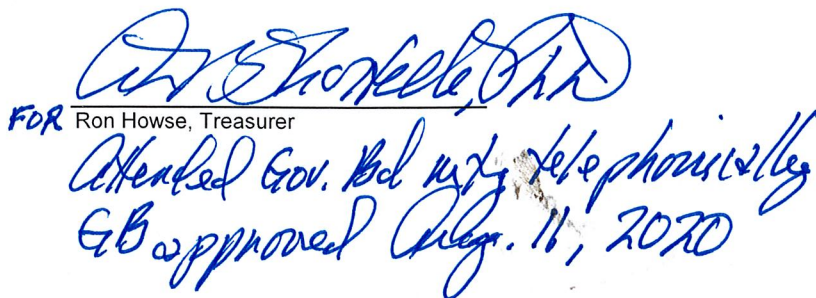 FOR Ron Howse, Treasurer
Attended Gov. Bd mtg telephonically
GB approved Aug. 11, 2020